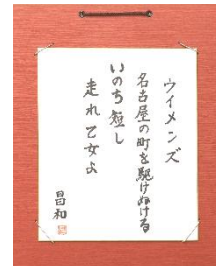 ウイメンズ
名古屋の町を駆けぬける
いのち短し
走れ乙女よ
昌和